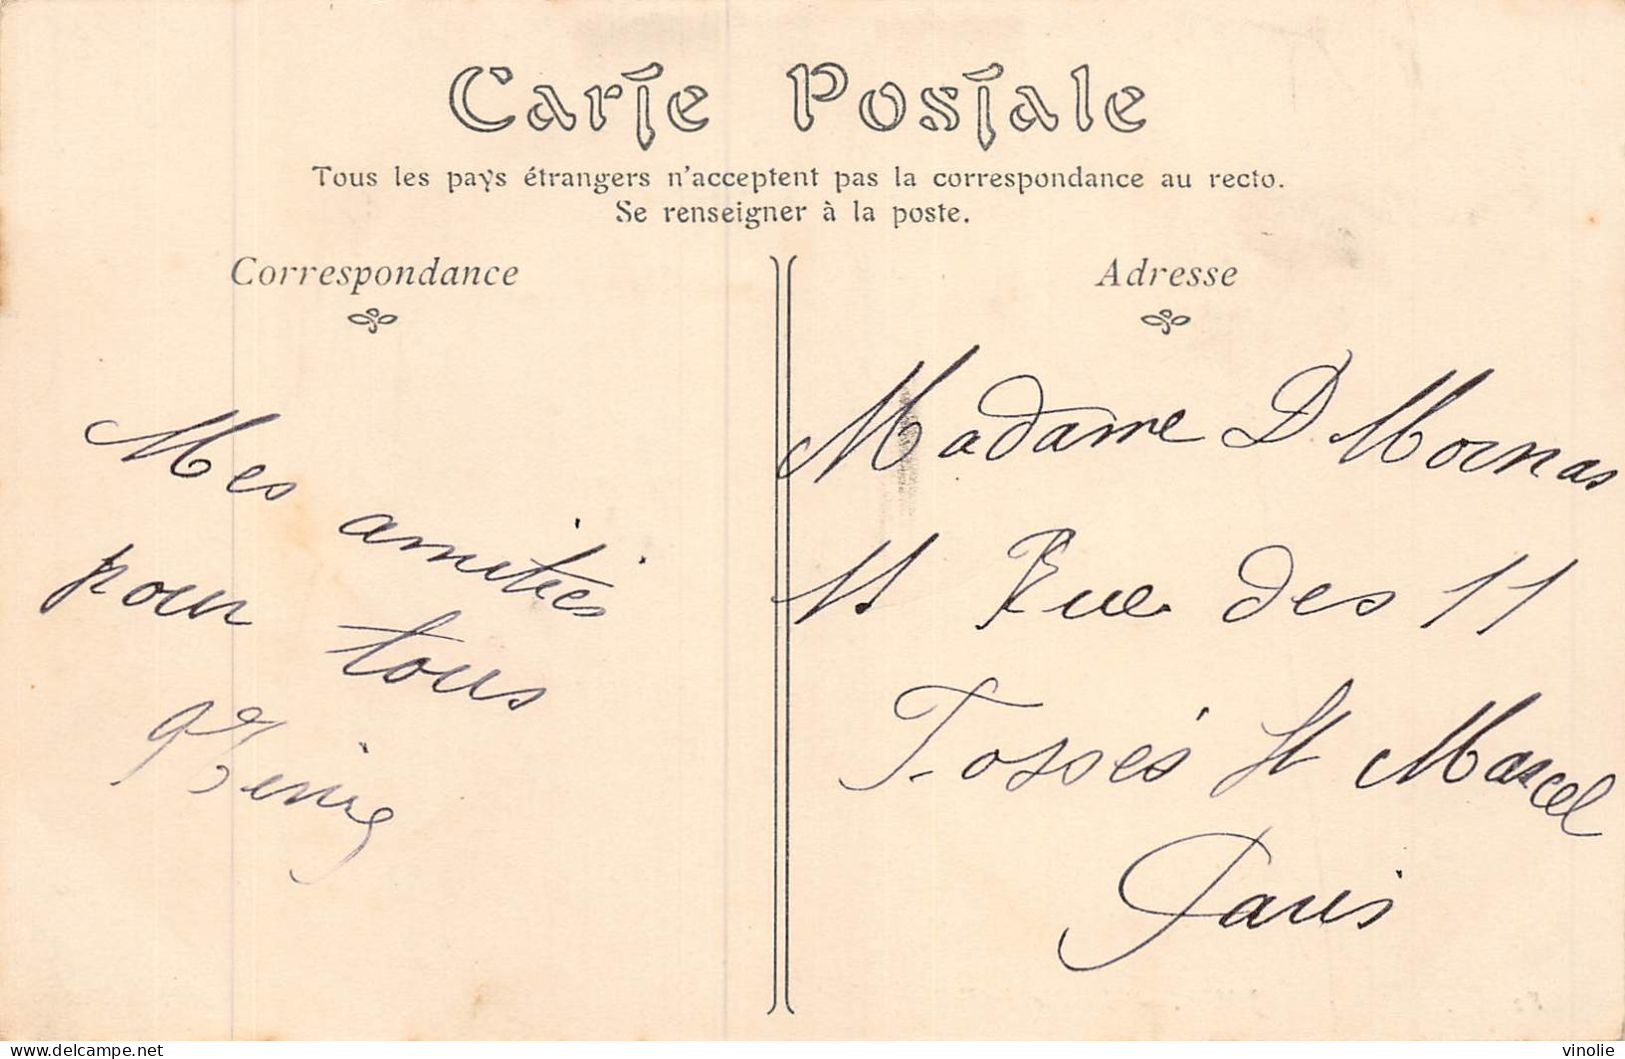 Carte Postale
Tous les pays étrangers n'acceptent pas la correspondance au recto.
Se renseigner à la poste.
Correspondance
Mes amitiés
pour tous
Adresse
Madame D Mornas
11 Rue des 11
Fossés St Marcel
Paris
www.delcampe.net
vinolie